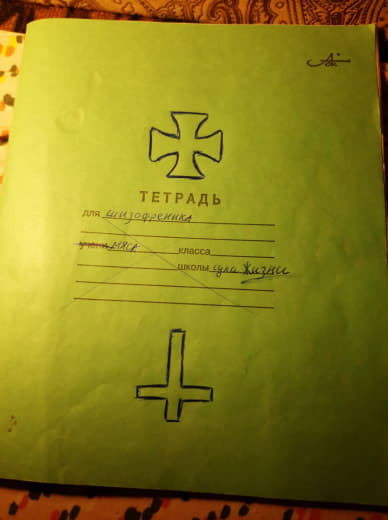 ТЕТРАДЬ
для шизофреника
учени мяса класса
школы сула Жизни